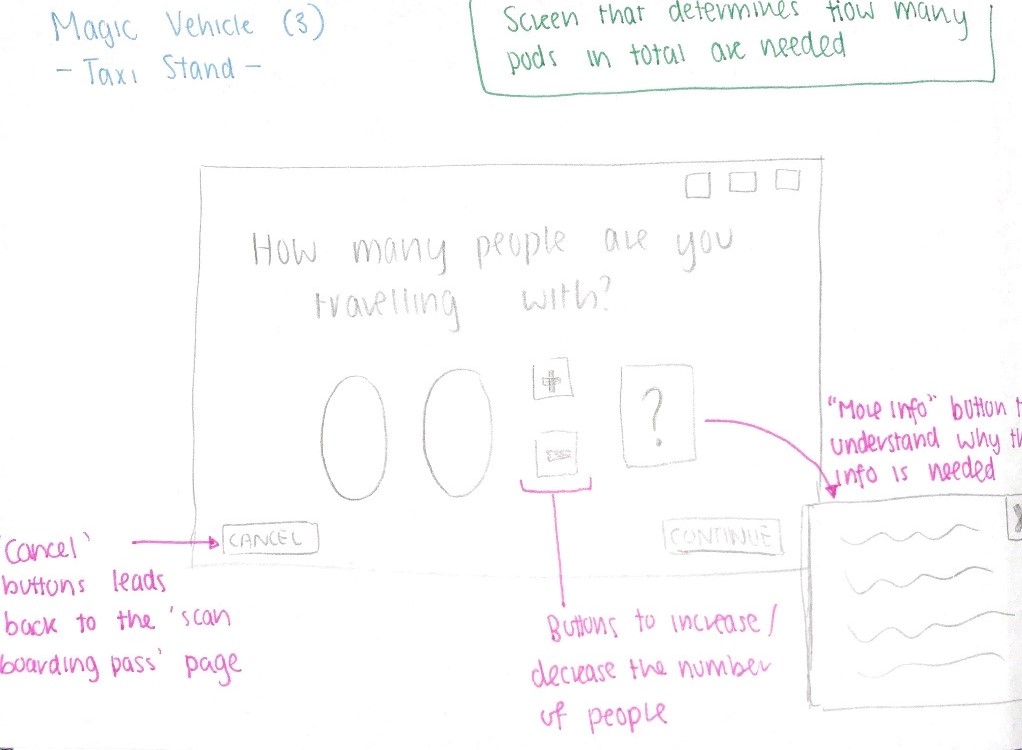 Magic Vehicle (3)
- Taxi Stand -
Screen that determines how many
pods in total are needed
How many people are you
travelling with?
+
-
?
"More info" button
understand why
info is needed
CANCEL
CONTINUE
'Cancel'
buttons leads
back to the 'scan
boarding pass' page
Buttons to increase/
decrease the number
of people